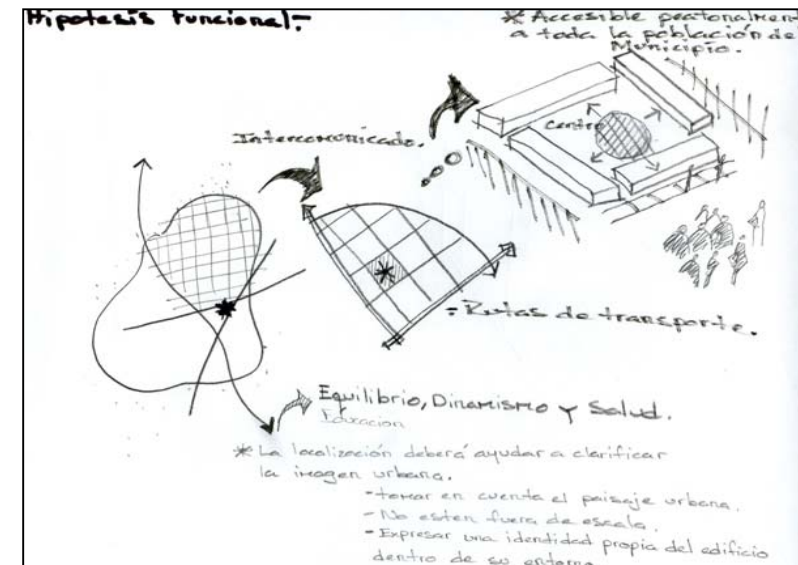 Hipotesis funcional:-
* Accesible peatonalmen-
a toda la población del
Municipio.
Centro
Intercomunicado.
- Rutas de transporte.
Equilibrio, Dinamismo y Salud.
Educacion
* La localización deberá ayudar a clarificar
la imagen urbana.
- tomar en cuenta el paisaje urbana.
- No esten fuera de escala.
- Expresar una identidad propia del edificio
dentro de su entorno